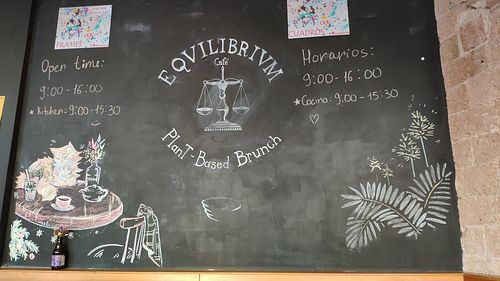 FRAMES
CUADROS
EQVILIBRIVM
Café
PlanT-Based Brunch
Open time:
9:00-16:00
*Kitchen: 9:00-15:30
Horarios:
9:00-16:00
*Cocina: 9:00-15:30